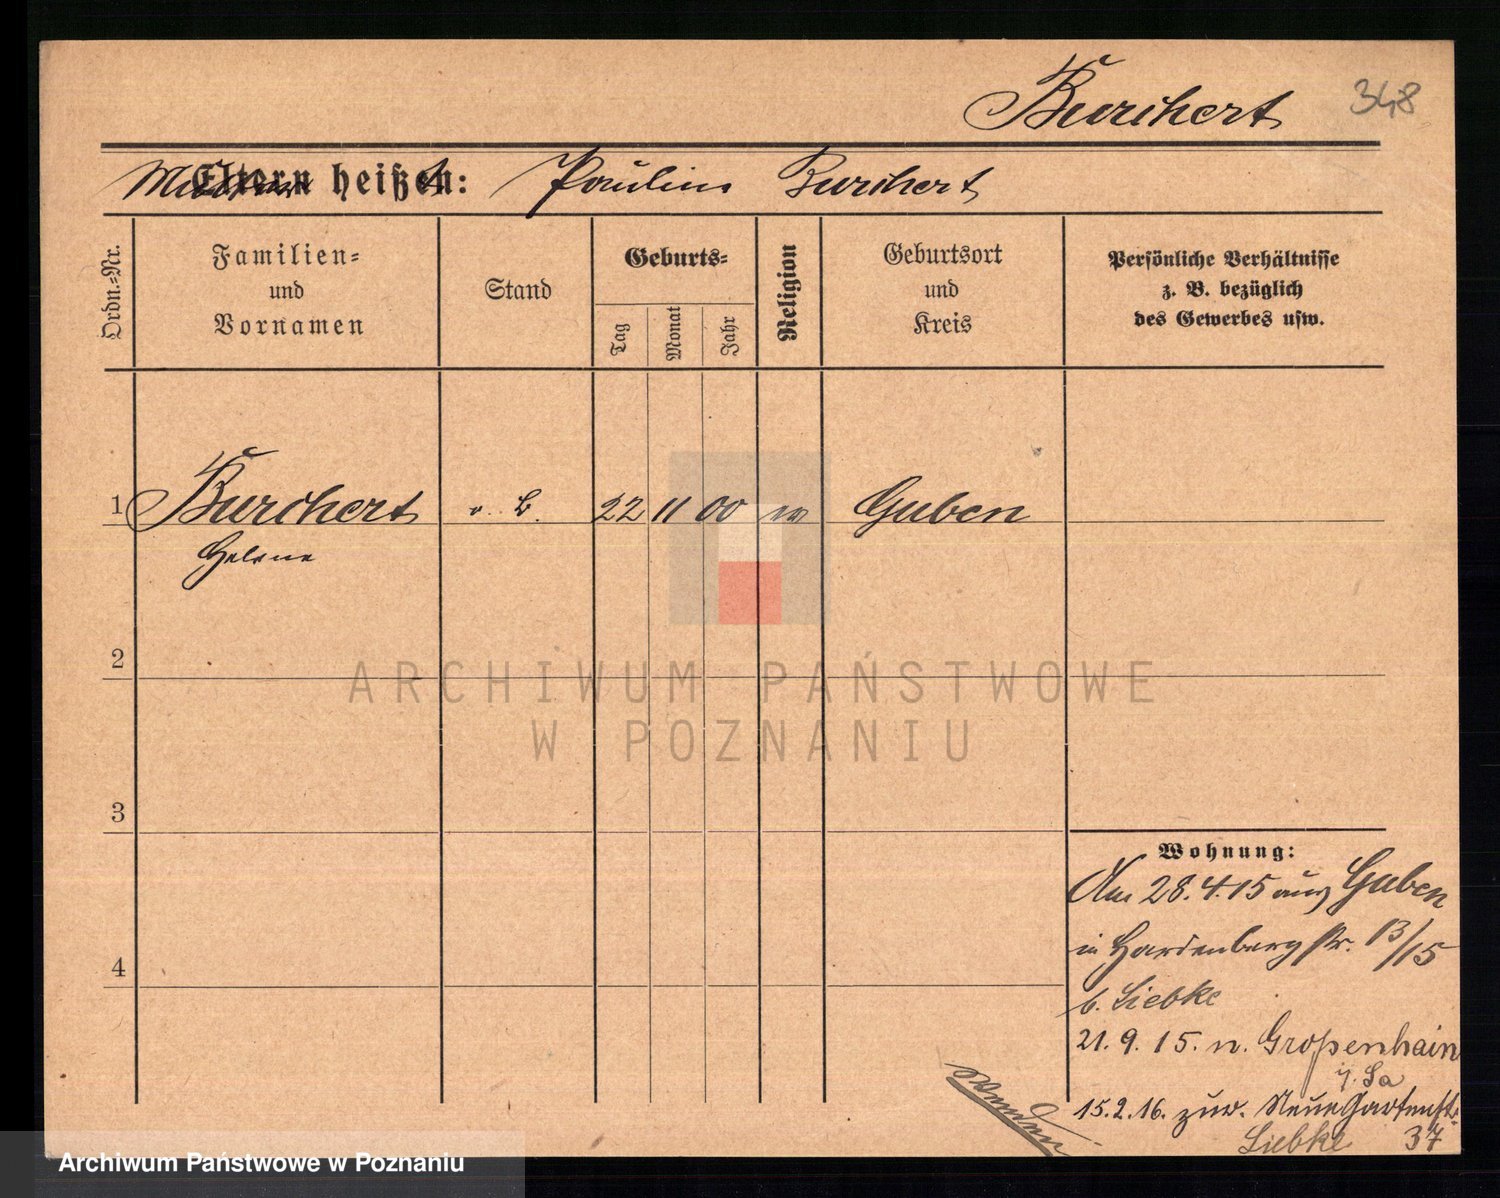 Burchert 348
Mutter heißt: Pauline Burchert
Ordn.-Nr.
Familien-
und
Vornamen
Stand
Geburts-
Tag
Monat
Jahr
Religion
Geburtsort
und
Kreis
Persönliche Verhältnisse
z. B. bezüglich
des Gewerbes usw.
1 Burchert o. B. 22 11 00 ev Guben
Helene
2
3
4
ARCHIWUM PAŃSTWOWE
W POZNANIU
Wohnung:
Am 28.4.15 aus Guben
in Hardenbergstr. 13/15
b. Liebke
21. 9. 15. n. Großenhain
i. Sa
15.2.16. zur. Neue Gartenstr.
Liebke 37
Wenden
Archiwum Państwowe w Poznaniu